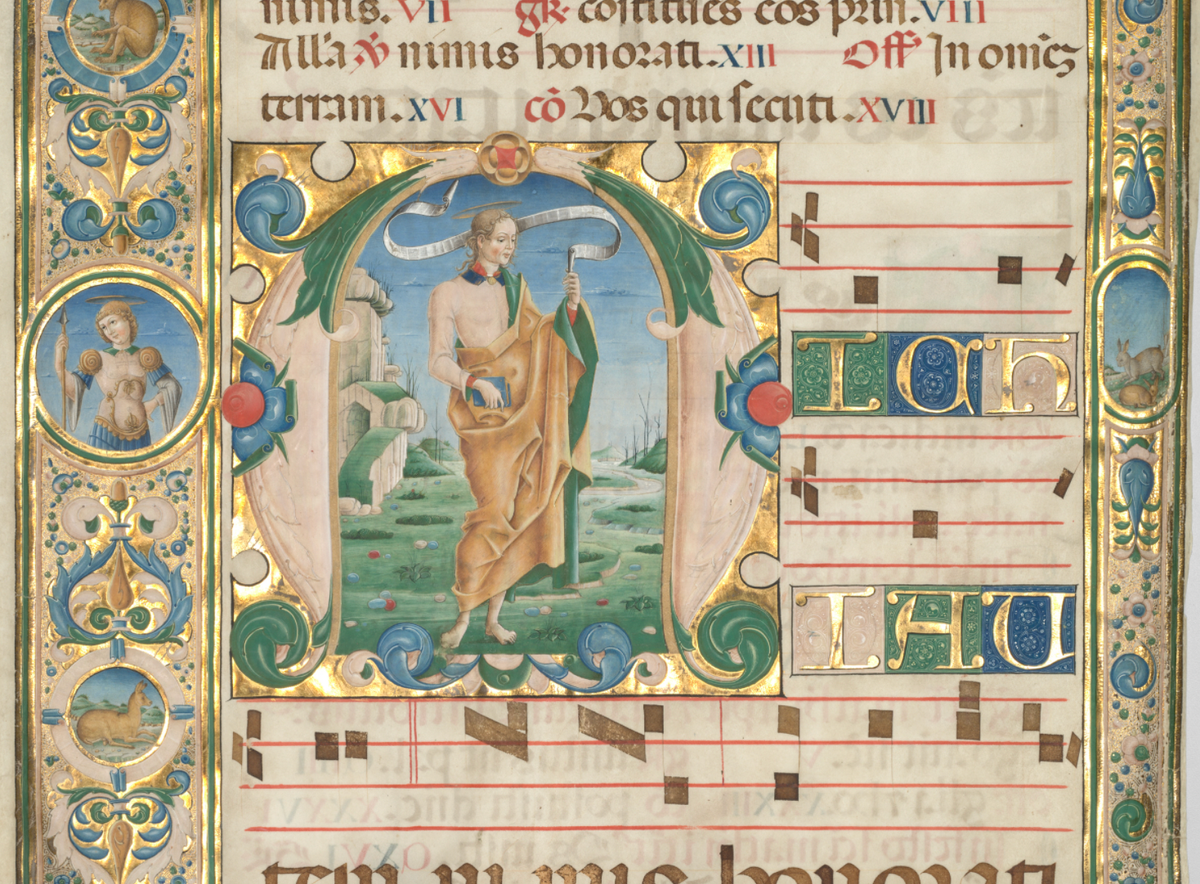 nimis. VII gr̄. Cōstitues eos prīn. VIII
All'a. v̄. nimis honorati. XIII Off' In om̄ez
terram. XVI cō Vos qui secuti. XVIII
ICH
IAU
tem nimis honorati